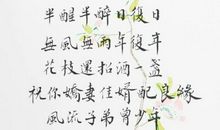 半醒半醉日復日
無風無雨年復年
花枝還招酒一盞
祝你嬌妻佳婿配良緣
風流子弟曾少年